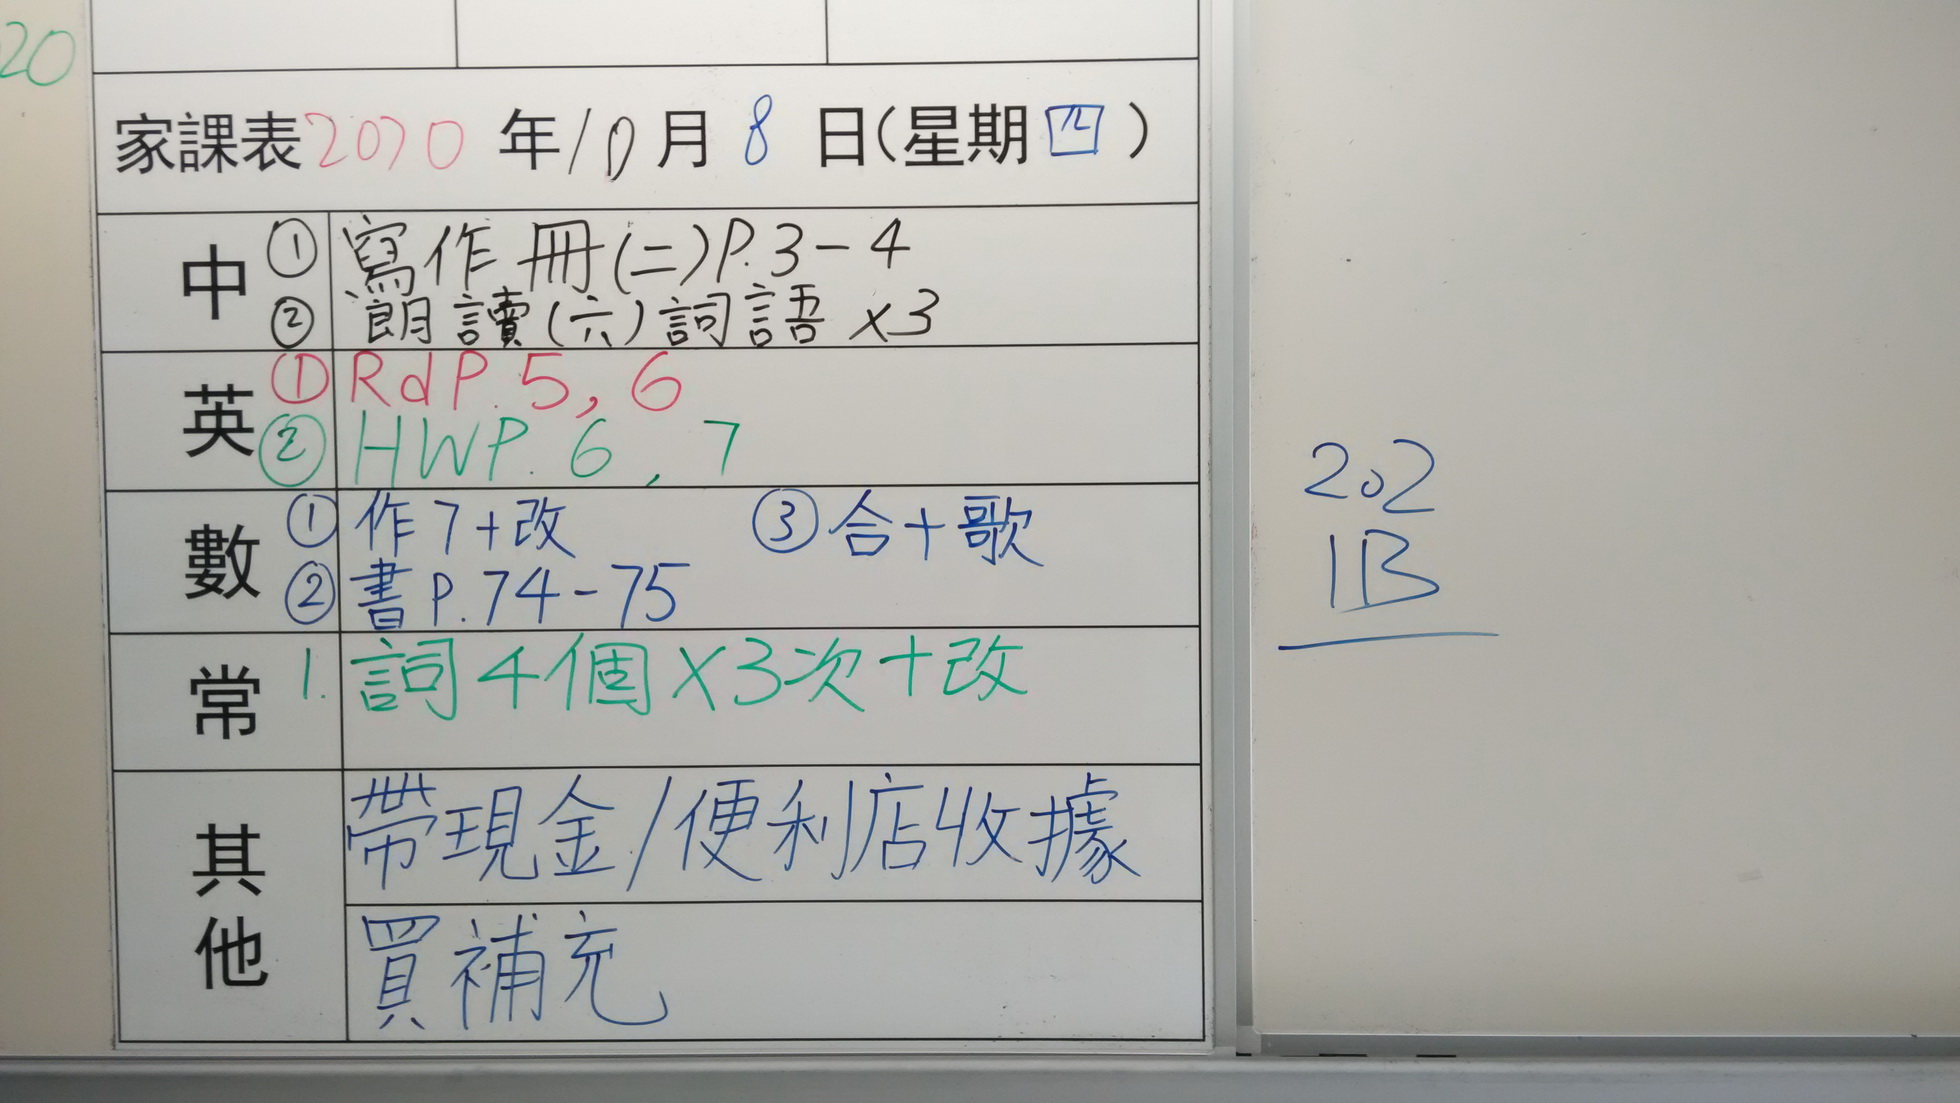 20
家課表2020年10月8日(星期四)
中 ① 寫作冊(二)P.3-4
② 朗讀(六)詞語x3
英 ① RdP.5,6
② HWP.6,7
數 ① 作7+改 ③ 合+歌
② 書P.74-75
常 1. 詞4個X3次+改
其他 帶現金/便利店收據
買補充
202
1B